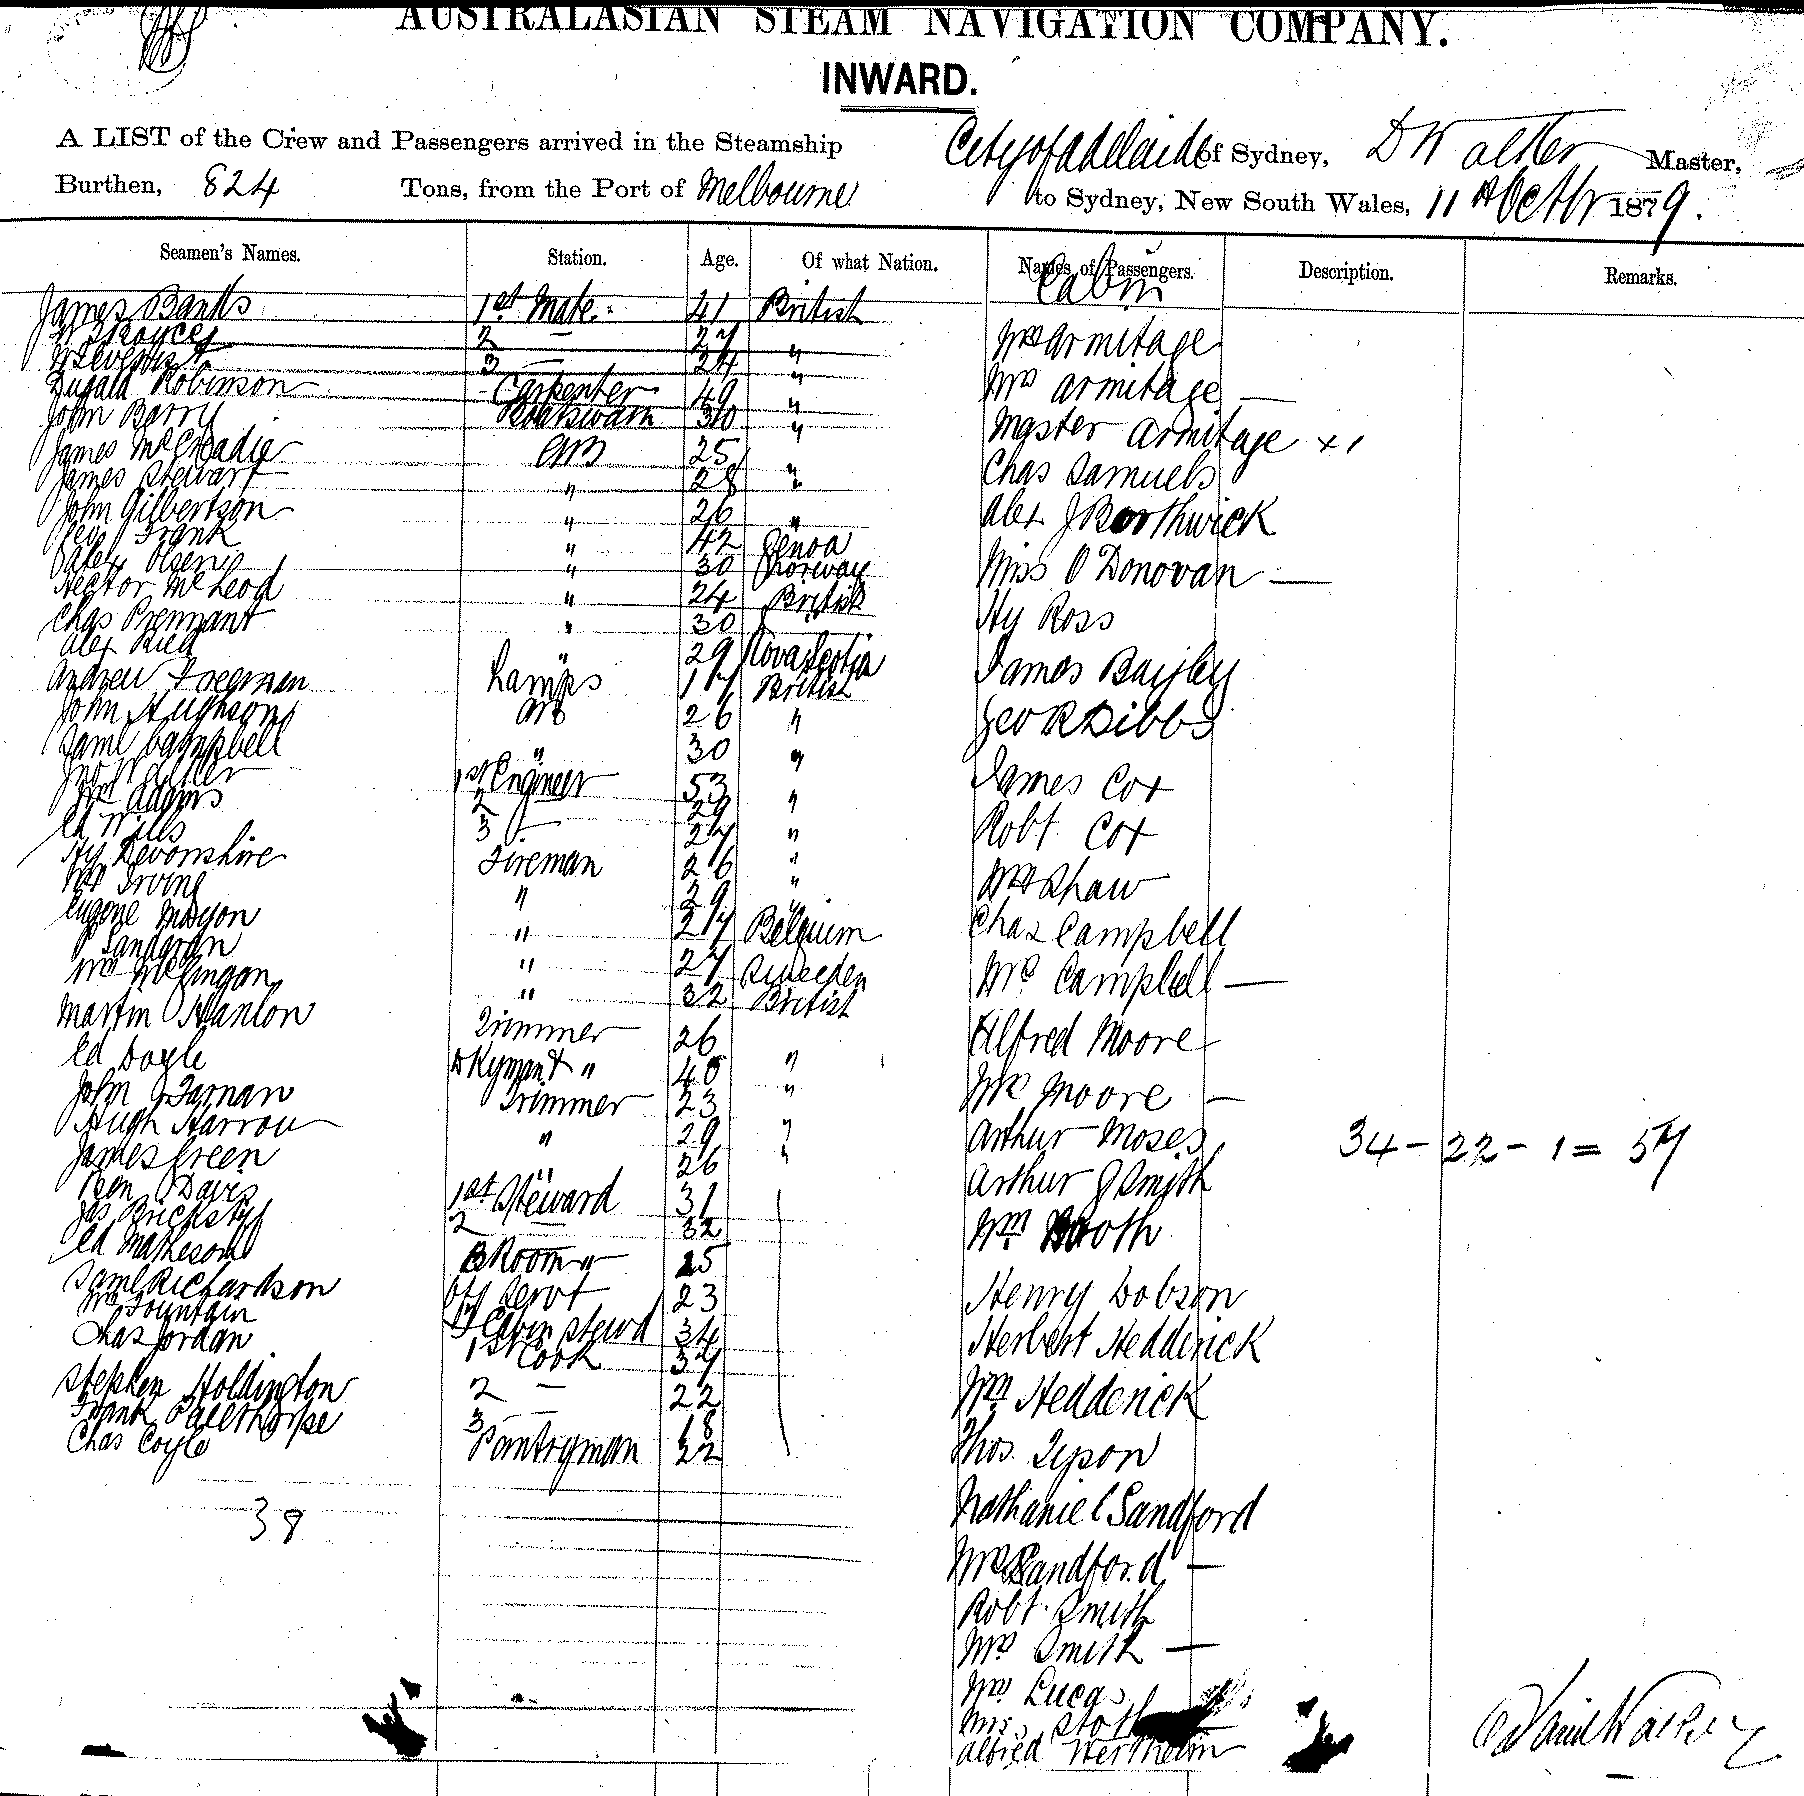 AUSTRALASIAN STEAM NAVIGATION COMPANY.
INWARD.
A LIST of the Crew and Passengers arrived in the Steamship City of Adelaide of Sydney, D Walker Master,
Burthen, 824 Tons, from the Port of Melbourne to Sydney, New South Wales, 11 Octbr 1879.
Seamen's Names. Station. Age. Of what Nation. Names of Passengers. Description. Remarks.
Cabin
James Banks 1st Mate 41 British
2 — 27 "
3 — 24 "
Dugald Robinson Carpenter 49 "
John Barry Boatswain 30 "
James McCreadie AB 25 "
James Stewart " 28 "
John Gilbertson " 26 "
Geo Frank " 42 Genoa
Olsen " 30 Norway
Hector McLeod " 24 British
Chas Prennant " 30 "
Alex Ried " 29 Nova Scotia
Andrew Freeman Lamps 17 British
John Hughson AB 26 "
Saml Campbell " 30 "
Jno Walker 1st Engineer 53 "
Wm Adams 2 29 "
Ed Wills 3 — 27 "
Hy Devonshire Fireman 26 "
Wm Irving " 29 "
Eugene Mayon " 27 Belgium
" 27 Sweeden
Wm McLingan " 32 British
Martin Hanlon Trimmer 26
Ed Doyle Dkyman & " 40 "
John Tarnan Trimmer 23 "
Hugh Harrow " 29 "
James Green " 26 "
Ben Davis 1st Steward 31
Jas 2 — 32
Ed Matheson B Room " 25
Saml Richardson Off Servt 23
Wm Fountain Cabin Stewd 34
Chas Jordan 1st Cook 37
Stephen Holdington 2 — 22
Frank Palethorpe 3 — 18
Chas Coyle Pantryman 22
38
Mr Armitage
Mrs Armitage —
Master Armitage x 1
Chas Samuels
Alex J Borthwick
Miss O Donovan —
Hy Ross
James Bayley
Geo R Dibbs
James Cox
Robt Cox
Wm Shaw
Chas Campbell
Mrs Campbell —
Alfred Moore
Mrs Moore —
Arthur Moses
Arthur J Smith
Wm Booth
Henry Dobson
Herbert Hedderick
Wm Hedderick
Thos. Tyson
Nathaniel Sandford
Mrs Sandford —
Robt Smith
Mrs Smith —
Mrs Lucas
Mrs
Alfred Wertheim
34 - 22 - 1 = 57
David Walker